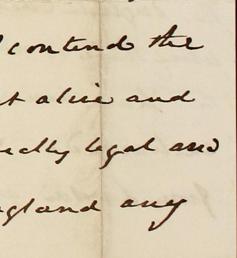 contend the
t alive and
ally legal and
gland any